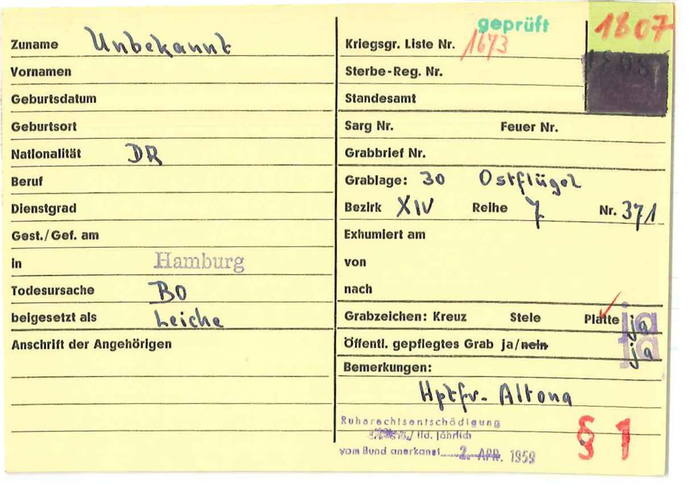 Zuname Unbekannt
Vornamen
Geburtsdatum
Geburtsort
Nationalität DR
Beruf
Dienstgrad
Gest./Gef. am
in Hamburg
Todesursache BO
beigesetzt als Leiche
Anschrift der Angehörigen
geprüft
1807
Kriegsgr. Liste Nr. 1673
Sterbe-Reg. Nr.
Standesamt
Sarg Nr. Feuer Nr.
Grabbrief Nr.
Grablage: 30 Ostflügel
Bezirk XIV Reihe 7 Nr. 371
Exhumiert am
von
nach
Grabzeichen: Kreuz Stele Platte ja
Öffentl. gepflegtes Grab ja/nein ja
Bemerkungen:
Hptfr. Altona
Ruherechtsentschädigung
/ lfd. jährlich
vom Bund anerkannt 2. APR. 1959
§ 1